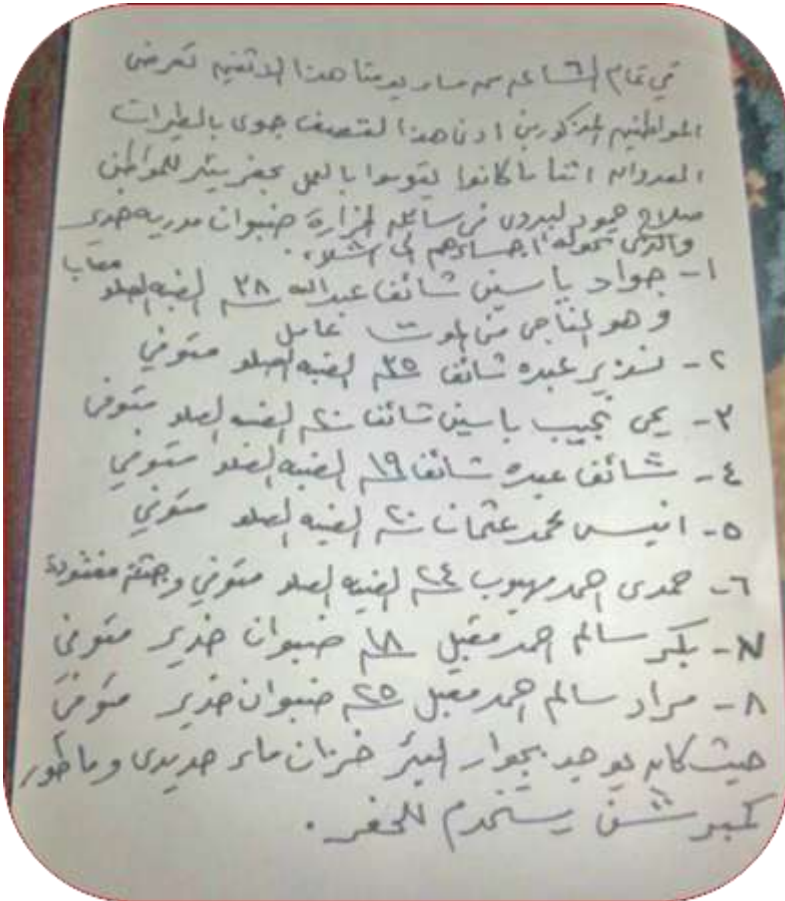 في تمام الساعه من مساء يومنا هذا الاثنين تعرض
المواطنين المذكورين ادنا هذا لقصف جوي بالطيرات
العدوان اثنا ما كانوا يقوموا بالعمل بحفر بئر للمواطن
صلاح حمود في سائله الجزارة ضبوان مديريه خدير
والذي تحوله اجسادهم الى اشلاء.
١- جواد ياسين شائف عبدالله ٢٨ سنه الصلو مصاب
وهو الناجي من الموت عامل
٢- عبده شائف ٣٥ سنه الصلو متوفي
٣- يحي نجيب ياسين شائف ٢٠ سنه الصلو متوفي
٤- شائف عبده شائف ١٩ سنه الصلو متوفي
٥- انيس محمد عثمان ٢٠ سنه الصلو متوفي
٦- حمدي احمد مهيوب ٢٤ سنه الصلو متوفي وجثته مفقودة
٧- بكر سالم احمد مقبل ١٨ سنه ضبوان خدير متوفي
٨- مراد سالم احمد مقبل ٢٥ سنه ضبوان خدير متوفي
حيث كان يوجد بجوار البئر خزان ماء حديدي وماطور
كمبرشن يستخدم للحفر.